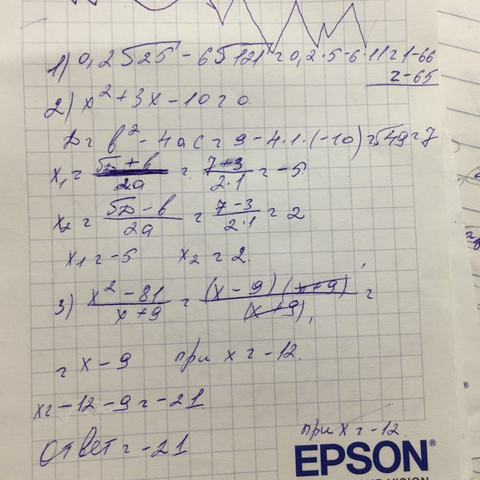 1) 0,2√25 - 6√121 = 0,2·5 - 6·11 = 1 - 66
= -65
2) x² + 3x - 10 = 0
D = b² - 4ac = 9 - 4·1·(-10) = √49 = 7
x₁ = (√D + b)/2a = (7+3)/(2·1) = -5
x₂ = (√D - b)/2a = (7-3)/(2·1) = 2
x₁ = -5 x₂ = 2.
3) (x² - 81)/(x+9) = (x-9)(x+9)/(x+9) =
= x - 9 при x = -12.
x = -12 - 9 = -21.
Ответ = -21
при x = -12.
EPSON®